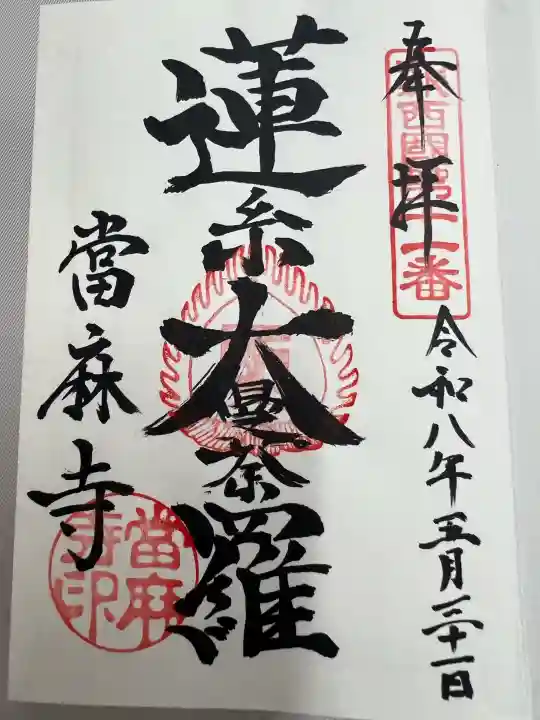 奉拝
新西国第十一番
令和八年五月三十一日
蓮糸大曼荼羅
當麻寺
當麻寺印